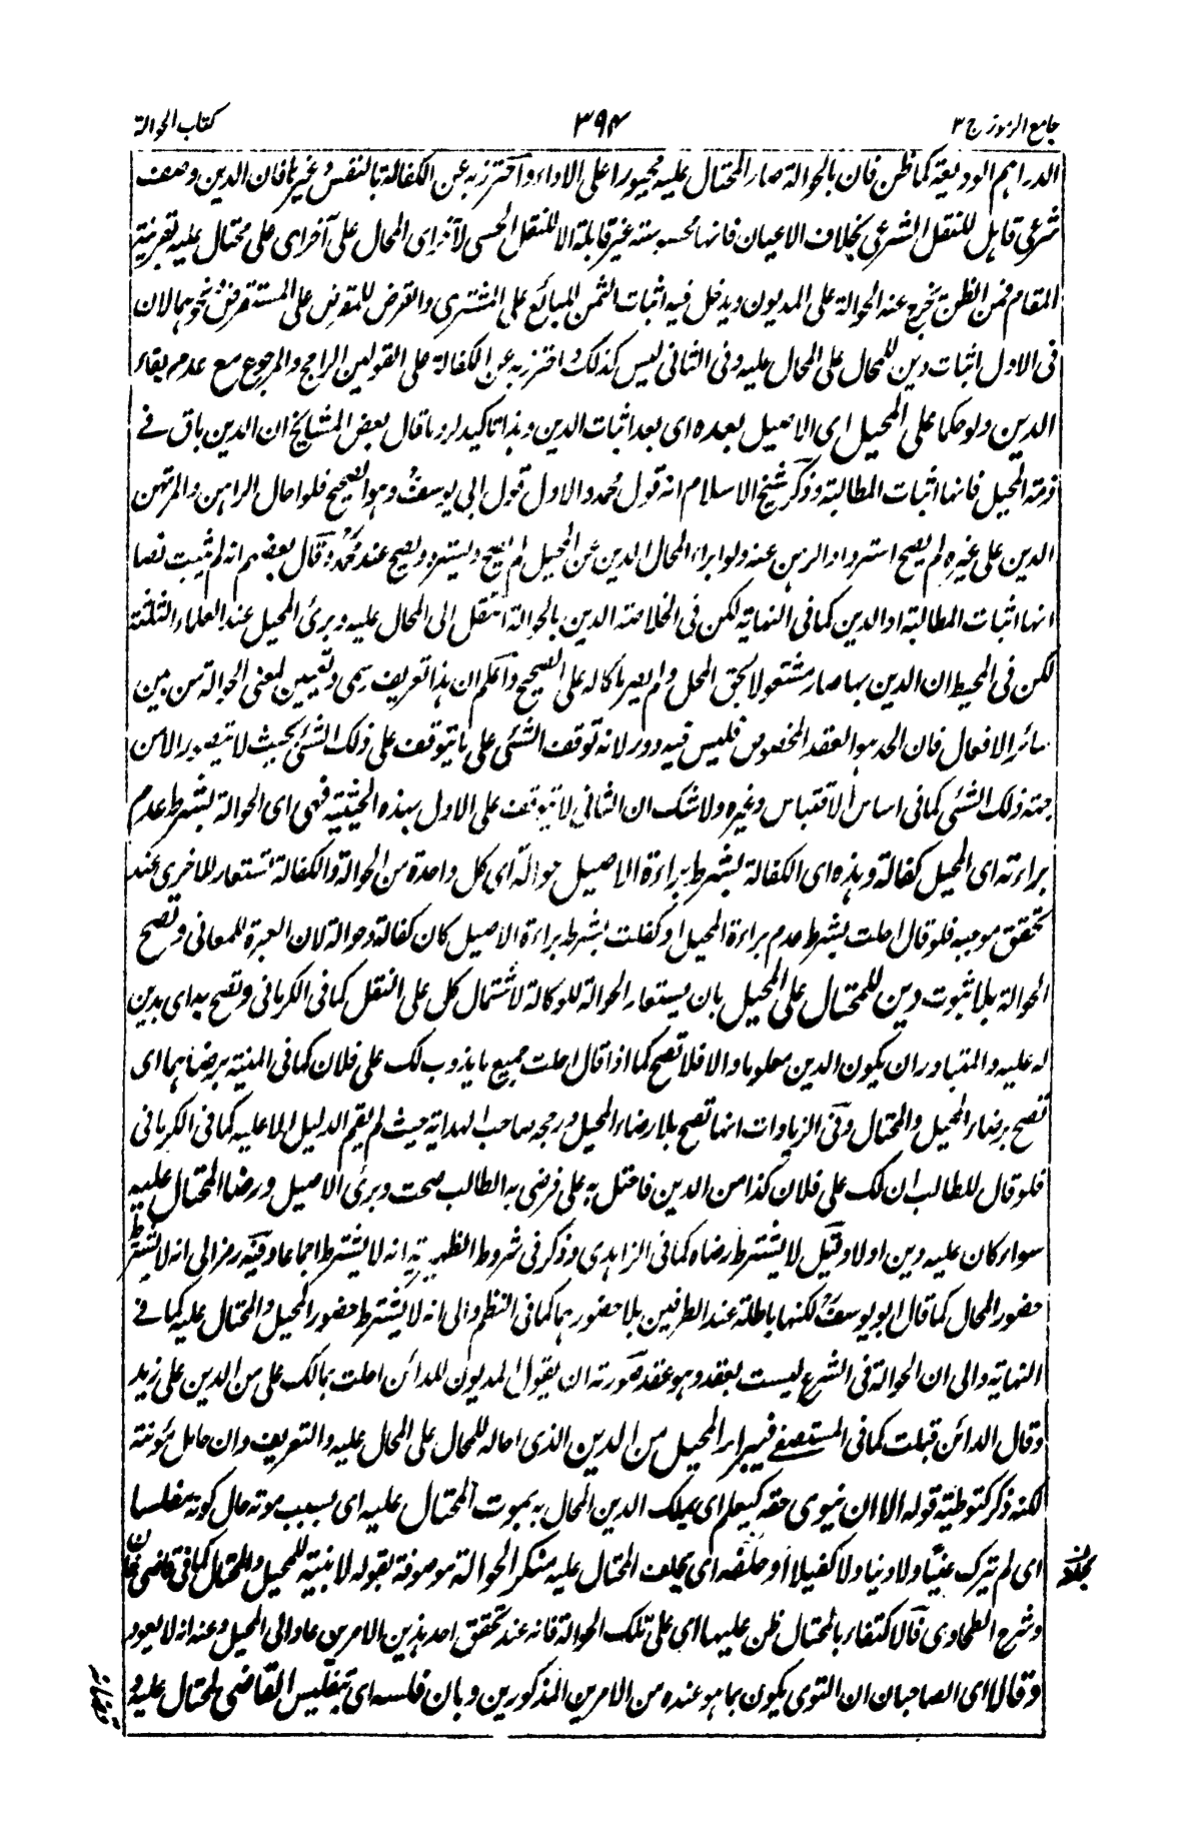 جامع الرموز ج ٣
٣٩٤
كتاب الحوالة
الدراهم الوديعة كما ظن فان بالحوالة صار المحتال عليه مجبورا على الاداء واحترز به عن الكفالة بالنفس وغيرها فان الدين وصف
شرعى قابل للنقل الشرعى بخلاف الاعيان فانها محسوسة غير قابلة الا للنقل الحسى لآخر اى المحال على آخر اى على محتال عليه بقرينة
المقام فمن الظن يخرج عنه الحوالة على المديون ويدخل فيه اثبات الثمن للبائع على المشترى والقرض للمقرض على المستقرض ونحوهما لان
فى الاول اثبات دين للمحال على المحال عليه وفى الثانى ليس كذلك واحترز به عن الكفالة على القولين الراجح والمرجوع مع عدم بقاء
الدين ولو حكما على المحيل اى الاصيل بعده اى بعد اثبات الدين وهذا تاكيد لرد ما قال بعض المشايخ ان الدين باق فى
ذمة المحيل فانها اثبات المطالبة وذكر شيخ الاسلام انه قول محمد والاول قول ابى يوسف وهو الصحيح فلو احال الراهن المرتهن
الدين على غيره لم يصح استرداد الرهن عنه ولو ابراء المحال الدين عن المحيل لم يصح ويسترد ويصح عند محمد وقال بعضهم انه لم يثبت نصا
انها اثبات المطالبة او الدين كما فى النهاية لكن فى الخلاصة الدين بالحوالة انتقل الى المحال عليه وبرئ المحيل عند العلماء الثلثة
لكن فى المحيط ان الدين بها صار مشتغولا بحق المحل ولم يصر هالكا له على الصحيح واعلم ان هذا تعريف سمى وتعيين لمعنى الحوالة من بين
سائر الافعال فان الحد هو العقد المخصوص فليس فيه دور لانه توقف الشئ على ما يتوقف على ذلك الشئ بحيث لا يتصور الا من
جهة ذلك الشئ كما فى اساس الاقتباس وغيره ولا شك ان الثانى لا يتوقف على الاول بهذه الحيثية فهى اى الحوالة بشرط عدم
براءته اى المحيل كفالة وهذه اى الكفالة بشرط براءة الاصيل حوالة اى كل واحدة من الحوالة والكفالة تستعار للاخرى عند
تحقق موجبه فلو قال احلت بشرط عدم براءة المحيل او كفلت بشرط براءة الاصيل كان كفالة وحوالة لان العبرة للمعانى وتصح
الحوالة بلا ثبوت دين للمحتال على المحيل بان يستعار الحوالة للوكالة لاشتمال كل على النقل كما فى الكرمانى وتصح به اى بدين
له عليه والمتبادر ان يكون الدين معلوما والا فلا تصح كما اذا قال احلت جميع ما يذوب لك على فلان كما فى المنية برضاهما اى
تصح برضاء المحيل والمحتال وفى الزيادات انها تصح بلا رضاء المحيل ورجحه صاحب الهداية حيث لم يقم الدليل الا ما عليه كما فى الكرمانى
فلو قال للطالب ان لك على فلان كذا من الدين فاحتل به على فرضى به الطالب صحت وبرئ الاصيل ورضا المحتال عليه
سواء كان عليه دين اولا وقيل لا يشترط رضاه كما فى الزاهدى وذكر فى شروط الظهيرية انه لا يشترط اجماعا وفيه رمز الى انه لا يشترط
حضور المحال كما قال ابو يوسف لكنها باطلة عند الطرفين بلا حضورهما كما فى النظم والى انه لا يشترط حضور المحيل والمحتال عليه كما فى
النهاية والى ان الحوالة فى الشرع ليست بعقد وهو عقد صورته ان يقول المديون للدائن احلت بمالك على من الدين على زيد
وقال الدائن قبلت كما فى المستصفى فيبراء المحيل من الدين الذى احاله للمحال على المحال عليه والتعريف وان حامل مؤنته
لكنه ذكر كتوطية قوله الا ان يتوى حقه كيعلم اى يهلك الدين المحال به بموت المحتال عليه اى بسبب موته حال كونه مفلسا
اى لم يترك عينا ولا دينا ولا كفيلا او حلفه اى يحلف المحتال عليه منكر الحوالة موصوفة بقوله لا بينة للمحيل والمحتال كما فى قاضى خان
وشرح الطحاوى فالاكتفاء بالمحتال ظن عليها اى على تلك الحوالة فانه عند تحقق احد هذين الامرين عاد الى المحيل وعنه انه لا يعود
وقالا اى الصاحبان ان التوى يكون بما هو عنده من الامرين المذكورين وبان فلسه اى تفليس القاضى المحتال عليه و